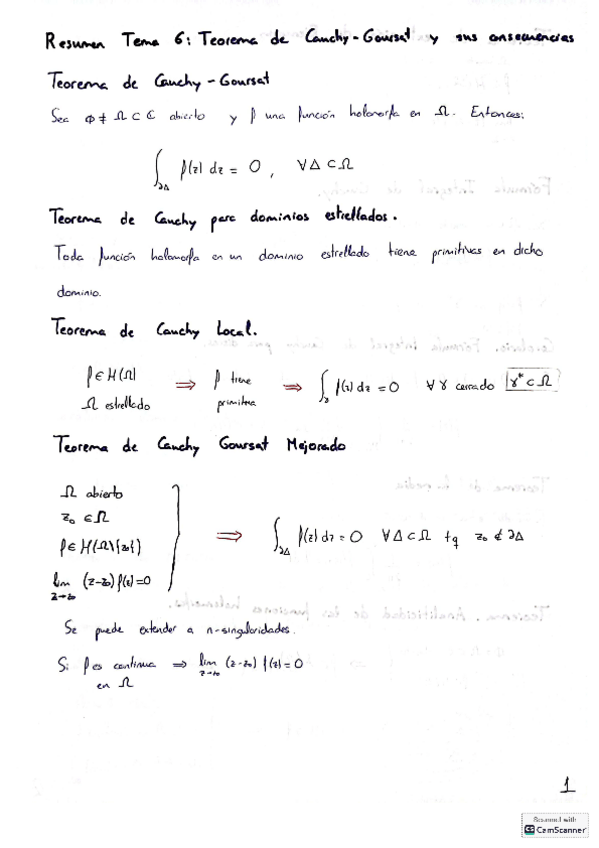 Resumen Tema 6: Teorema de Cauchy-Goursat y sus consecuencias
Teorema de Cauchy-Goursat
Sea ∅ ≠ Ω ⊂ ℂ abierto y f una función holomorfa en Ω. Entonces:
∫_{∂Δ} f(z) dz = 0, ∀Δ ⊂ Ω
Teorema de Cauchy para dominios estrellados.
Toda función holomorfa en un dominio estrellado tiene primitivas en dicho
dominio.
Teorema de Cauchy Local.
f ∈ H(Ω) Ω estrellado ⇒ f tiene primitiva ⇒ ∫_γ f(z) dz = 0 ∀ γ cerrado γ* ⊂ Ω
Teorema de Cauchy Goursat Mejorado
Ω abierto
z₀ ∈ Ω
f ∈ H(Ω\{z₀}) ⇒ ∫_{∂Δ} f(z) dz = 0 ∀Δ ⊂ Ω tq z₀ ∉ ∂Δ
lim_{z→z₀} (z-z₀) f(z) = 0
Se puede extender a n-singularidades.
Si f es continua en Ω ⇒ lim_{z→z₀} (z-z₀) f(z) = 0
1
Scanned with
CS CamScanner